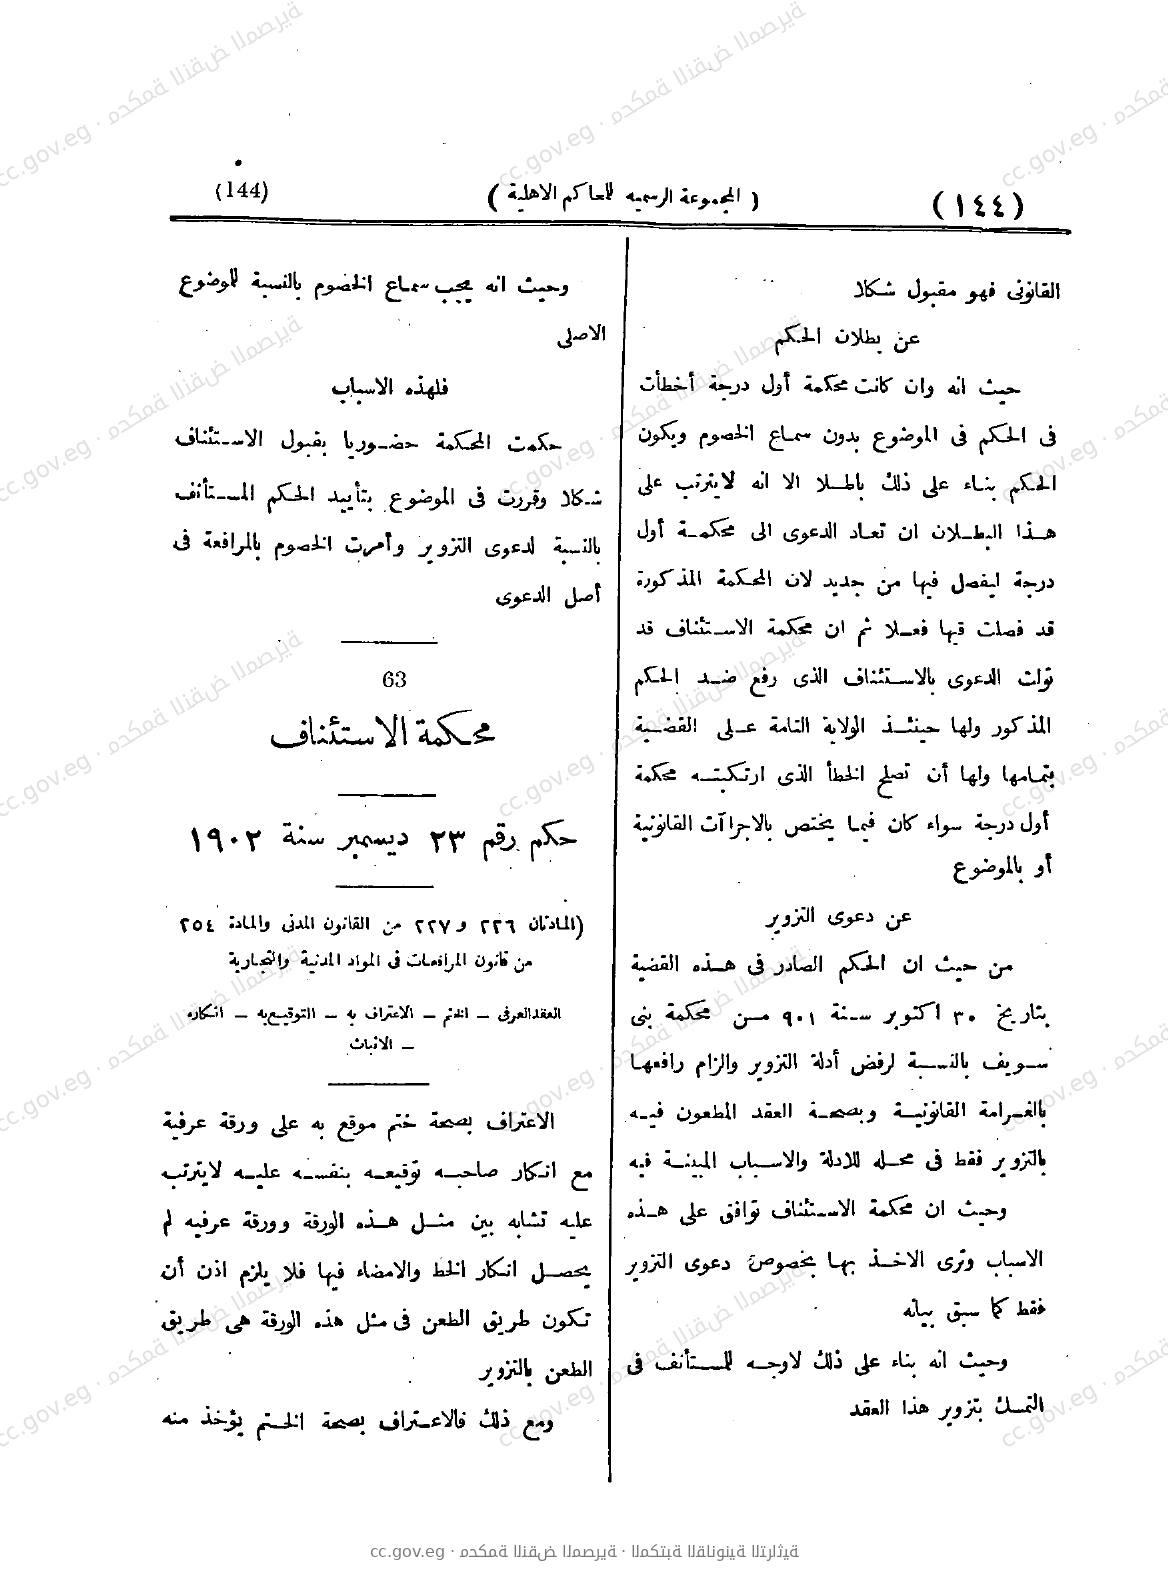 (١٤٤)
( المجموعة الرسميه للمحاكم الاهلية )
(144)
القانونى فهو مقبول شكلا
عن بطلان الحكم
حيث انه وان كانت محكمة أول درجة أخطأت
فى الحكم فى الموضوع بدون سماع الخصوم ويكون
الحكم بناء على ذلك باطلا الا انه لايترتب على
هذا البطلان ان تعاد الدعوى الى محكمة أول
درجة ليفصل فيها من جديد لان المحكمة المذكورة
قد فصلت فيها فعلا ثم ان محكمة الاستئناف قد
تولت الدعوى بالاستئناف الذى رفع ضد الحكم
المذكور ولها حينئذ الولاية التامة على القضية
بتمامها ولها أن تصلح الخطأ الذى ارتكبته محكمة
أول درجة سواء كان فيما يختص بالاجراآت القانونية
أو بالموضوع
عن دعوى التزوير
من حيث ان الحكم الصادر فى هذه القضية
بتاريخ ٣٠ اكتوبر سنة ٩٠١ من محكمة بنى
سويف بالنسبة لرفض أدلة التزوير والزام رافعها
بالغرامة القانونية وبصحة العقد المطعون فيه
بالتزوير فقط فى محله للادلة والاسباب المبينة فيه
وحيث ان محكمة الاستئناف توافق على هذه
الاسباب وترى الاخذ بها بخصوص دعوى التزوير
فقط كما سبق بيانه
وحيث انه بناء على ذلك لاوجه للمستأنف فى
التمسك بتزوير هذا العقد
وحيث انه يجب سماع الخصوم بالنسبة للموضوع
الاصلى
فلهذه الاسباب
حكمت المحكمة حضوريا بقبول الاستئناف
شكلا وقررت فى الموضوع بتأييد الحكم المستأنف
بالنسبة لدعوى التزوير وأمرت الخصوم بالمرافعة فى
أصل الدعوى
63
محكمة الاستئناف
حكم رقم ٢٣ ديسمبر سنة ١٩٠٢
(المادتان ٢٢٦ و ٢٢٧ من القانون المدنى والمادة ٢٥٤
من قانون المرافعات فى المواد المدنية والتجارية
العقدالعرفى – الختم – الاعتراف به – التوقيع به – انكاره
– الاثبات
الاعتراف بصحة ختم موقع به على ورقة عرفية
مع انكار صاحبه توقيعه بنفسه عليه لايترتب
عليه تشابه بين مثل هذه الورقة وورقة عرفيه لم
يحصل انكار الخط والامضاء فيها فلا يلزم اذن أن
تكون طريق الطعن فى مثل هذه الورقة هى طريق
الطعن بالتزوير
ومع ذلك فالاعتراف بصحة الختم يؤخذ منه
cc.gov.eg · محكمة النقض المصرية · المكتبة القانونية التراثية